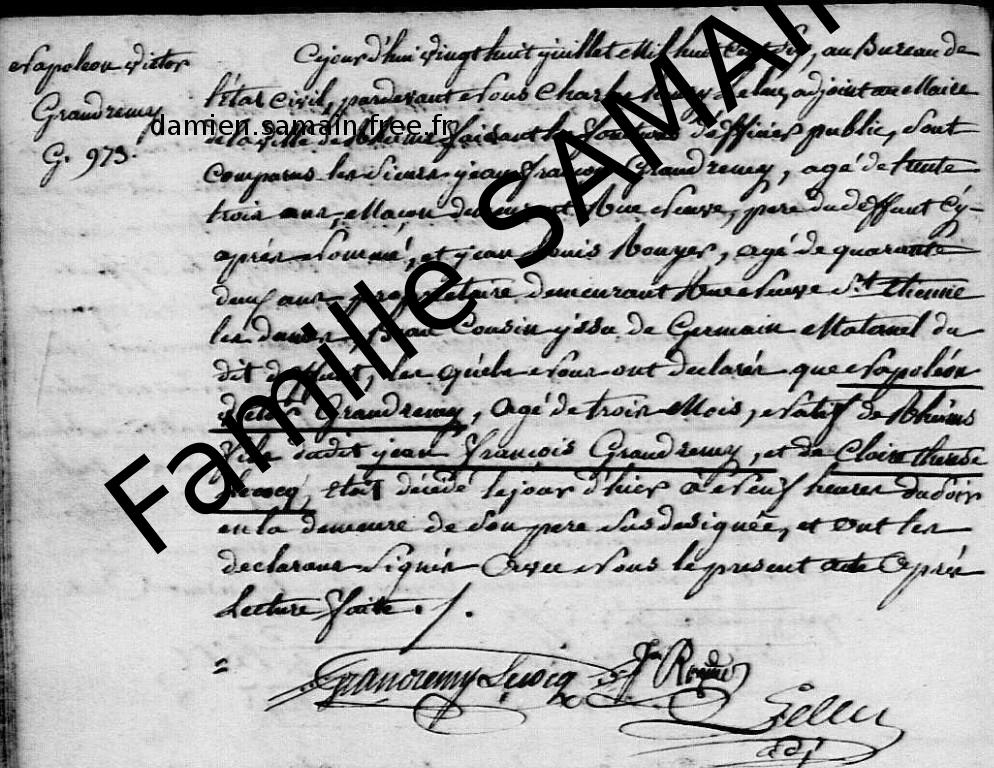 Napoleon Victor
Grandremy
G. 973.
Cejourd'hui vingt huit juillet Mil huit cent six, au Bureau de
l'état Civil, pardevant Nous Charles adjoint au Maire
de la ville de Rheims faisant les fonctions d'officier public, sont
comparus les sieurs jean françois Grandremy, agé de trente
trois ans, Maçon demeurant Rue Neuve, pere du deffunt Cy-
après Nommé, et jean Louis agé de quarante
deux ans propriétaire demeurant Rue Neuve St. Etienne
les dames, Beau Cousin yssu de Germain Maternel du
dit deffunt, les quéls Nous ont declarés que Napoléon
Victor Grandremy, Agé de trois Mois, Natif de Rheims
fils dudit jean françois Grandremy, et de Claire therese
Lecocq, Etait décédé le jour d'hier à Neuf heures du Soir
en la demeure de Son pere Sus designée, et ont les
declarans Signés Avec Nous le present acte Après
Lecture faite ./.
Grandremy Lecocq
damien.samain.free.fr
Famille SAMAIN